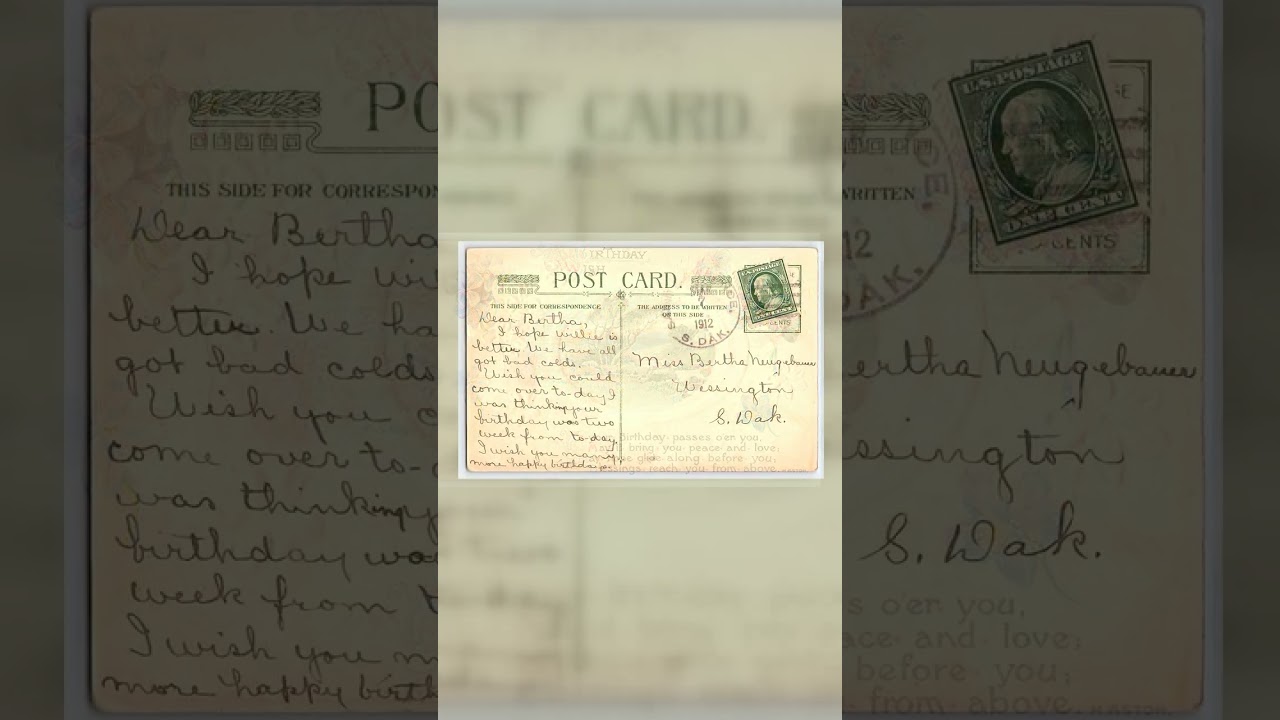 BIRTHDAY
POST CARD.
THIS SIDE FOR CORRESPONDENCE
THE ADDRESS TO BE WRITTEN
ON THIS SIDE
U.S. POSTAGE
ONE CENT
CENTS
1912
S. DAK.
Dear Bertha,
I hope willie is
better. We have all
got bad colds.
Wish you could
come over to-day I
was thinking your
birthday was two
week from to-day,
I wish you many
more happy birthdays.
Miss Bertha Neugebauer
Wessington
S. Dak.
Birthday passes o'er you,
bring you peace and love;
along before you;
reach you from above.